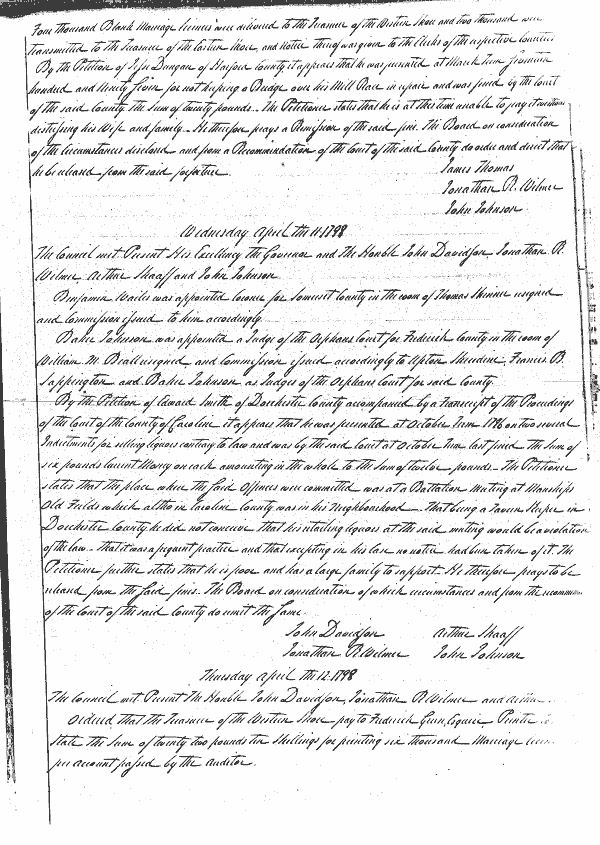 Four thousand Blank Marriage Licenses were delivered to the Treasurer of the Western Shore and two thousand were
transmitted to the Treasurer of the Eastern Shore, and notice thereof was given to the Clerks of the respective Counties
By the Petition of Jesse Dungan of Harford County it appears that he was presented at March Term seventeen
hundred and ninety seven for not keeping a Bridge over his Mill Race in repair and was fined by the Court
of the said County the Sum of twenty pounds. The Petitioner states that he is at this time unable to pay it without
distressing his Wife and family. He therefore prays a Remission of the said fine. The Board on consideration
of the Circumstances disclosed and from a Recommendation of the Court of the said County do order and direct that
he be released from the said forfeiture.
James Thomas
Jonathan R. Wilmer
John Johnson
Wednesday April the 11. 1798
The Council met Present His Excellency the Governor and The Honble John Davidson Jonathan R.
Wilmer Arthur Shaaff and John Johnson
Benjamin Wailes was appointed Coroner for Somerset County in the room of Thomas Skinner resigned
and Commission issued to him accordingly
Baker Johnson was appointed a Judge of the Orphans Court for Frederick County in the room of
William M. Beall resigned and Commission issued accordingly to Upton Sheredine Francis B.
Sappington and Baker Johnson as Judges of the Orphans Court for said County.
By the Petition of Edward Smith of Dorchester County accompanied by a transcript of the Proceedings
of the Court of the County of Caroline it appears that he was presented at October Term 1796 on two several
Indictments for selling liquors contrary to law and was by the said Court at October Term last fined the Sum of
six pounds Current Money on each amounting in the whole to the Sum of twelve pounds. The Petitioner
states that the place where the said Offences were committed was at a Battalion Muting at Manships
Old Fields which altho in Caroline County was in his Neighbourhood That being a Tavern Keeper in
Dorchester County he did not conceive that his retailing liquors at the said muting would be a violation
of the law. that it was a frequent practice and that excepting in his case no notice had been taken of it. The
Petitioner further states that he is poor and has a large family to support. He therefore prays to be
released from the said fines. The Board on consideration of which circumstances and from the recommen
of the Court of the said County do remit the same
John Davidson Arthur Shaaff
Jonathan R. Wilmer John Johnson
Thursday April the 12. 1798
The Council met Present The Honble John Davidson, Jonathan R Wilmer and Arthur
Ordered that the Treasurer of the Western Shore pay to Frederick Green, Esquire Printer to
State the Sum of twenty two pounds ten shillings for printing six thousand Marriage licen
per account passed by the Auditor.